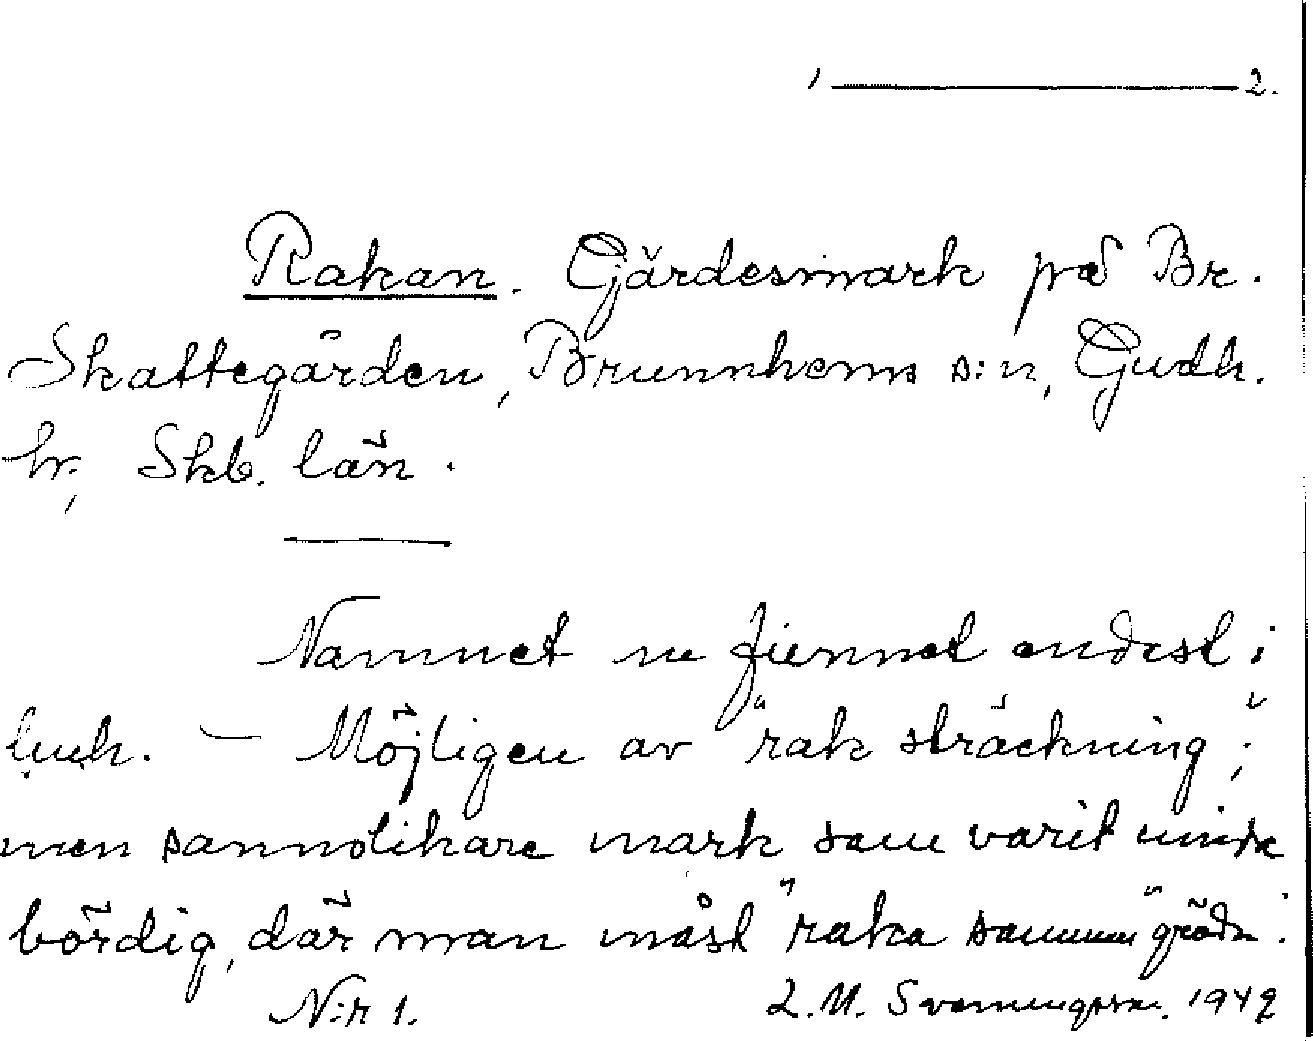 1 ——— 2.
Rakan. Gärdesmark på Br.
Skattegården, Brunnhems s:n, Gudh.
hr, Skb. län.
Namnet nu finnes endast i
bruk. — Möjligen av "rak sträckning";
men sannolikare mark som varit mindre
bördig, där man måst "raka samman" gröda.
N:r 1. L.M. Svenungsson. 1942